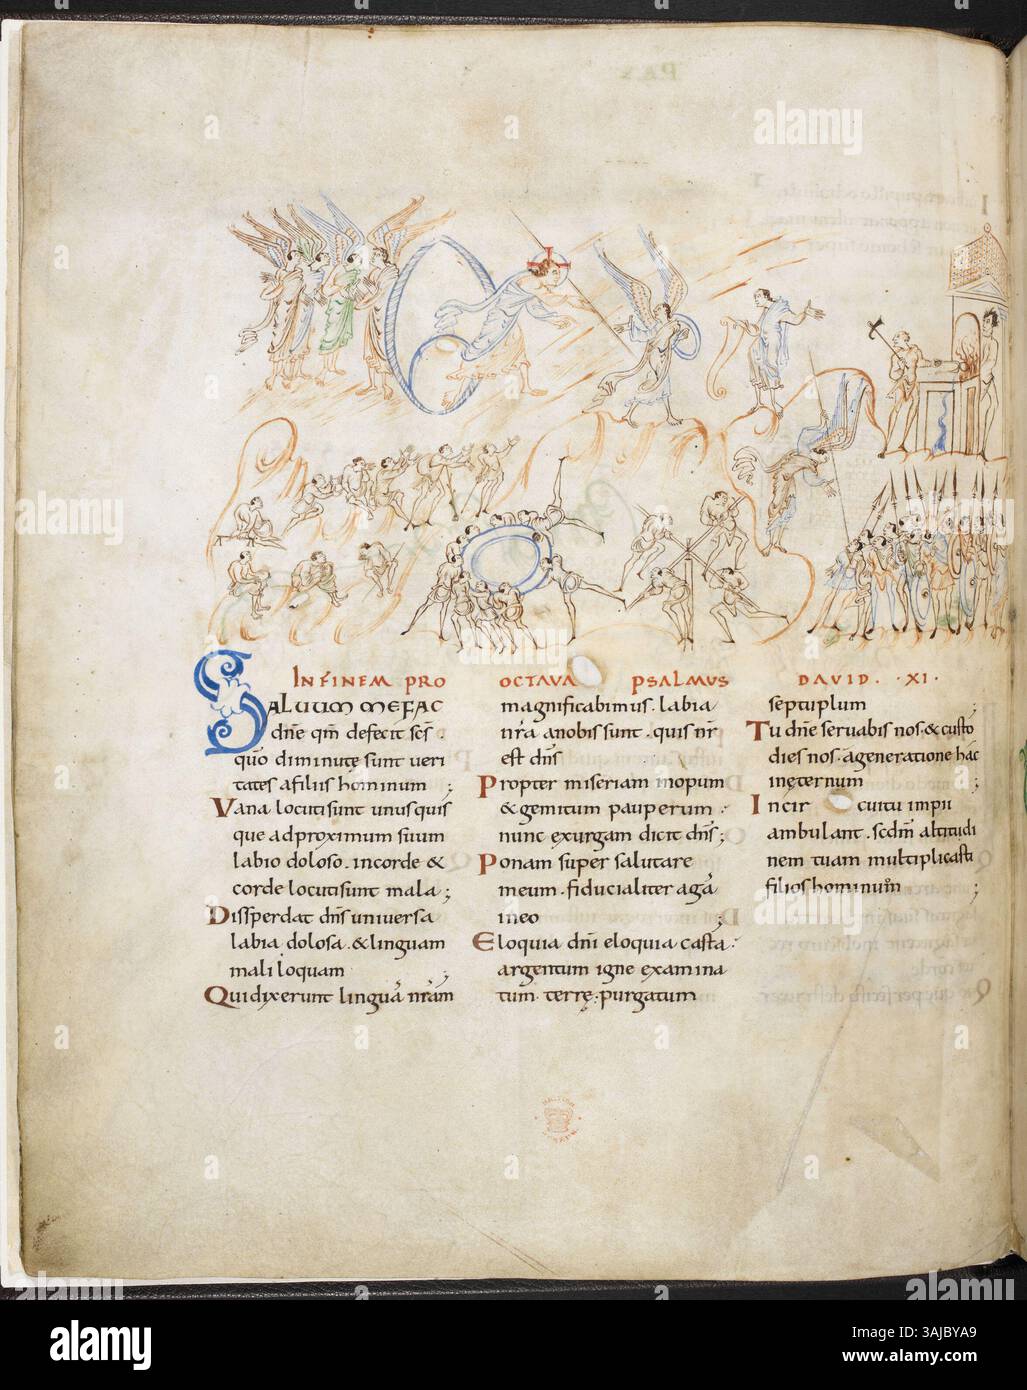 INFINEM PRO OCTAVA PSALMUS DAVID. ·XI·
SALUUM MEFAC
dñe qm̄ defecit sc̄s·
quō diminute sunt veri
tates afiliis hominum ;
Vana locutisunt unusquis
que adproximum suum
labio doloso. incorde &
corde locutisunt mala ;
Disperdat dn̄s universa
labia dolosa. & linguam
mali loquam ;
Quidixerunt linguā nr̄am
magnificabimus. labia
nr̄a anobis sunt. quis nr̄
est dn̄s
Propter miseriam inopum
& gemitum pauperum.
nunc exurgam dicit dn̄s ;
Ponam super salutare
meum. fiducialiter agā
ineo
Eloquia dn̄i eloquia casta.
argentum igne examina
tum. terrę. purgatum
septuplum ;
Tu dñe servabis nos. & custo
dies nos. ageneratione hāc
inęternum ;
Incircuitu impii
ambulant. scdm̄ altitudi
nem tuam multiplicasti
filios hominum ;
alamy
alamy
alamy
Image ID: 3AJBYA9
www.alamy.com